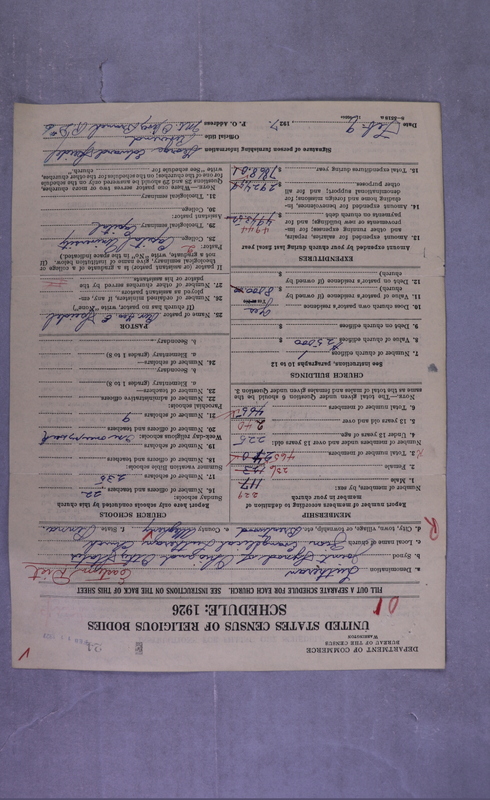 DEPARTMENT OF COMMERCE
BUREAU OF THE CENSUS
WASHINGTON
UNITED STATES CENSUS OF RELIGIOUS BODIES
SCHEDULE: 1926
FILL OUT A SEPARATE SCHEDULE FOR EACH CHURCH. SEE INSTRUCTIONS ON THE BACK OF THIS SHEET
a. Denomination Lutheran Eastern Dist
b. Synod Joint Synod of Ohio and Other States
c. Local name of church Zion Evangelical Lutheran Church
d. City, town, village, or township, etc. Brentwood e. County Allegheny f. State Penna
MEMBERSHIP
Report number of members according to definition of member in your church
Number of members, by sex:
1. Male 117 229
2. Female 236
3. Total number of members 465
Number under and over 13 years old:
4. Under 13 years of age 225
5. 13 years old and over 240
6. Total number of members 465
NOTE.—The total given under Question 6 should be the same as the total of males and females given under Question 3.
CHURCH BUILDINGS
See instructions, paragraphs 10 to 12
7. Number of church edifices 1
8. Value of church edifices $ 25000
9. Debt on church edifices $
10. Does church own pastor's residence yes
11. Value of pastor's residence (if owned by church) $ 8000.00
12. Debt on pastor's residence (if owned by church) $
EXPENDITURES
Amount expended by your church during last fiscal year
13. Amount expended for salaries, repairs, and other running expenses; for improvements or new building; and for payments on church debt $ 4944
14. Amount expended for benevolences, including home and foreign missions; for denominational support; and for all other purposes $ 2924
15. Total expenditures during year $ 7868.01
CHURCH SCHOOLS
Report here only schools conducted by this church
Sunday schools:
16. Number of officers and teachers 22
17. Number of scholars 235
Summer vacation Bible schools:
18. Number of officers and teachers
19. Number of scholars
Week-day religious schools:
20. Number of officers and teachers
21. Number of scholars 9
Parochial schools:
22. Number of administrative officers
23. Number of teachers—
a. Elementary (grades 1 to 8)
b. Secondary
24. Number of scholars—
a. Elementary (grades 1 to 8)
b. Secondary
PASTOR
25. Name of pastor
(If church has no pastor, write "None")
26. Number of ordained ministers, if any, employed as assistant pastors
27. Number of other churches served by the pastor or his assistants
If pastor (or assistant pastor) is a graduate of a college or theological seminary, give name of institution below. (If not a graduate, write "No" in the space indicated.)
Pastor:
28. College Capital University
29. Theological seminary Capital
Assistant pastor:
30. College
31. Theological seminary
NOTE.—Where one pastor serves two or more churches, Questions 25 and 29 should be answered only on the schedule for one of the churches; on the schedules for the other churches, write "See schedule for church."
Signature of person furnishing information George Edward Speidel
Official title
P. O. Address
Date Feb. 9, 1927